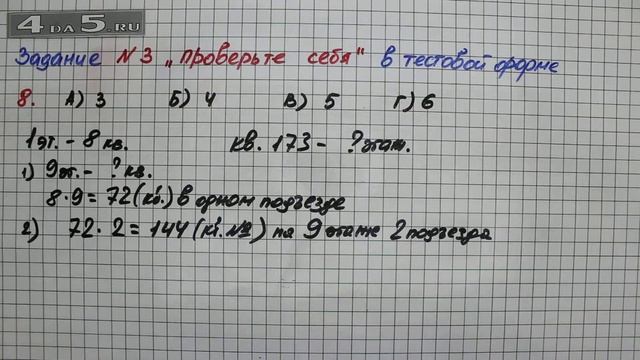 4DA5.RU
Задание №3 „Проверьте себя" в тестовой форме
8. А) 3 Б) 4 В) 5 Г) 6
1эт. - 8 кв. кв. 173 - ? этаж.
1) 9эт. - ? кв.
8·9 = 72 (кв.) в одном подъезде
2) 72·2 = 144 (кв. №) на 9 этаже 2 подъезда